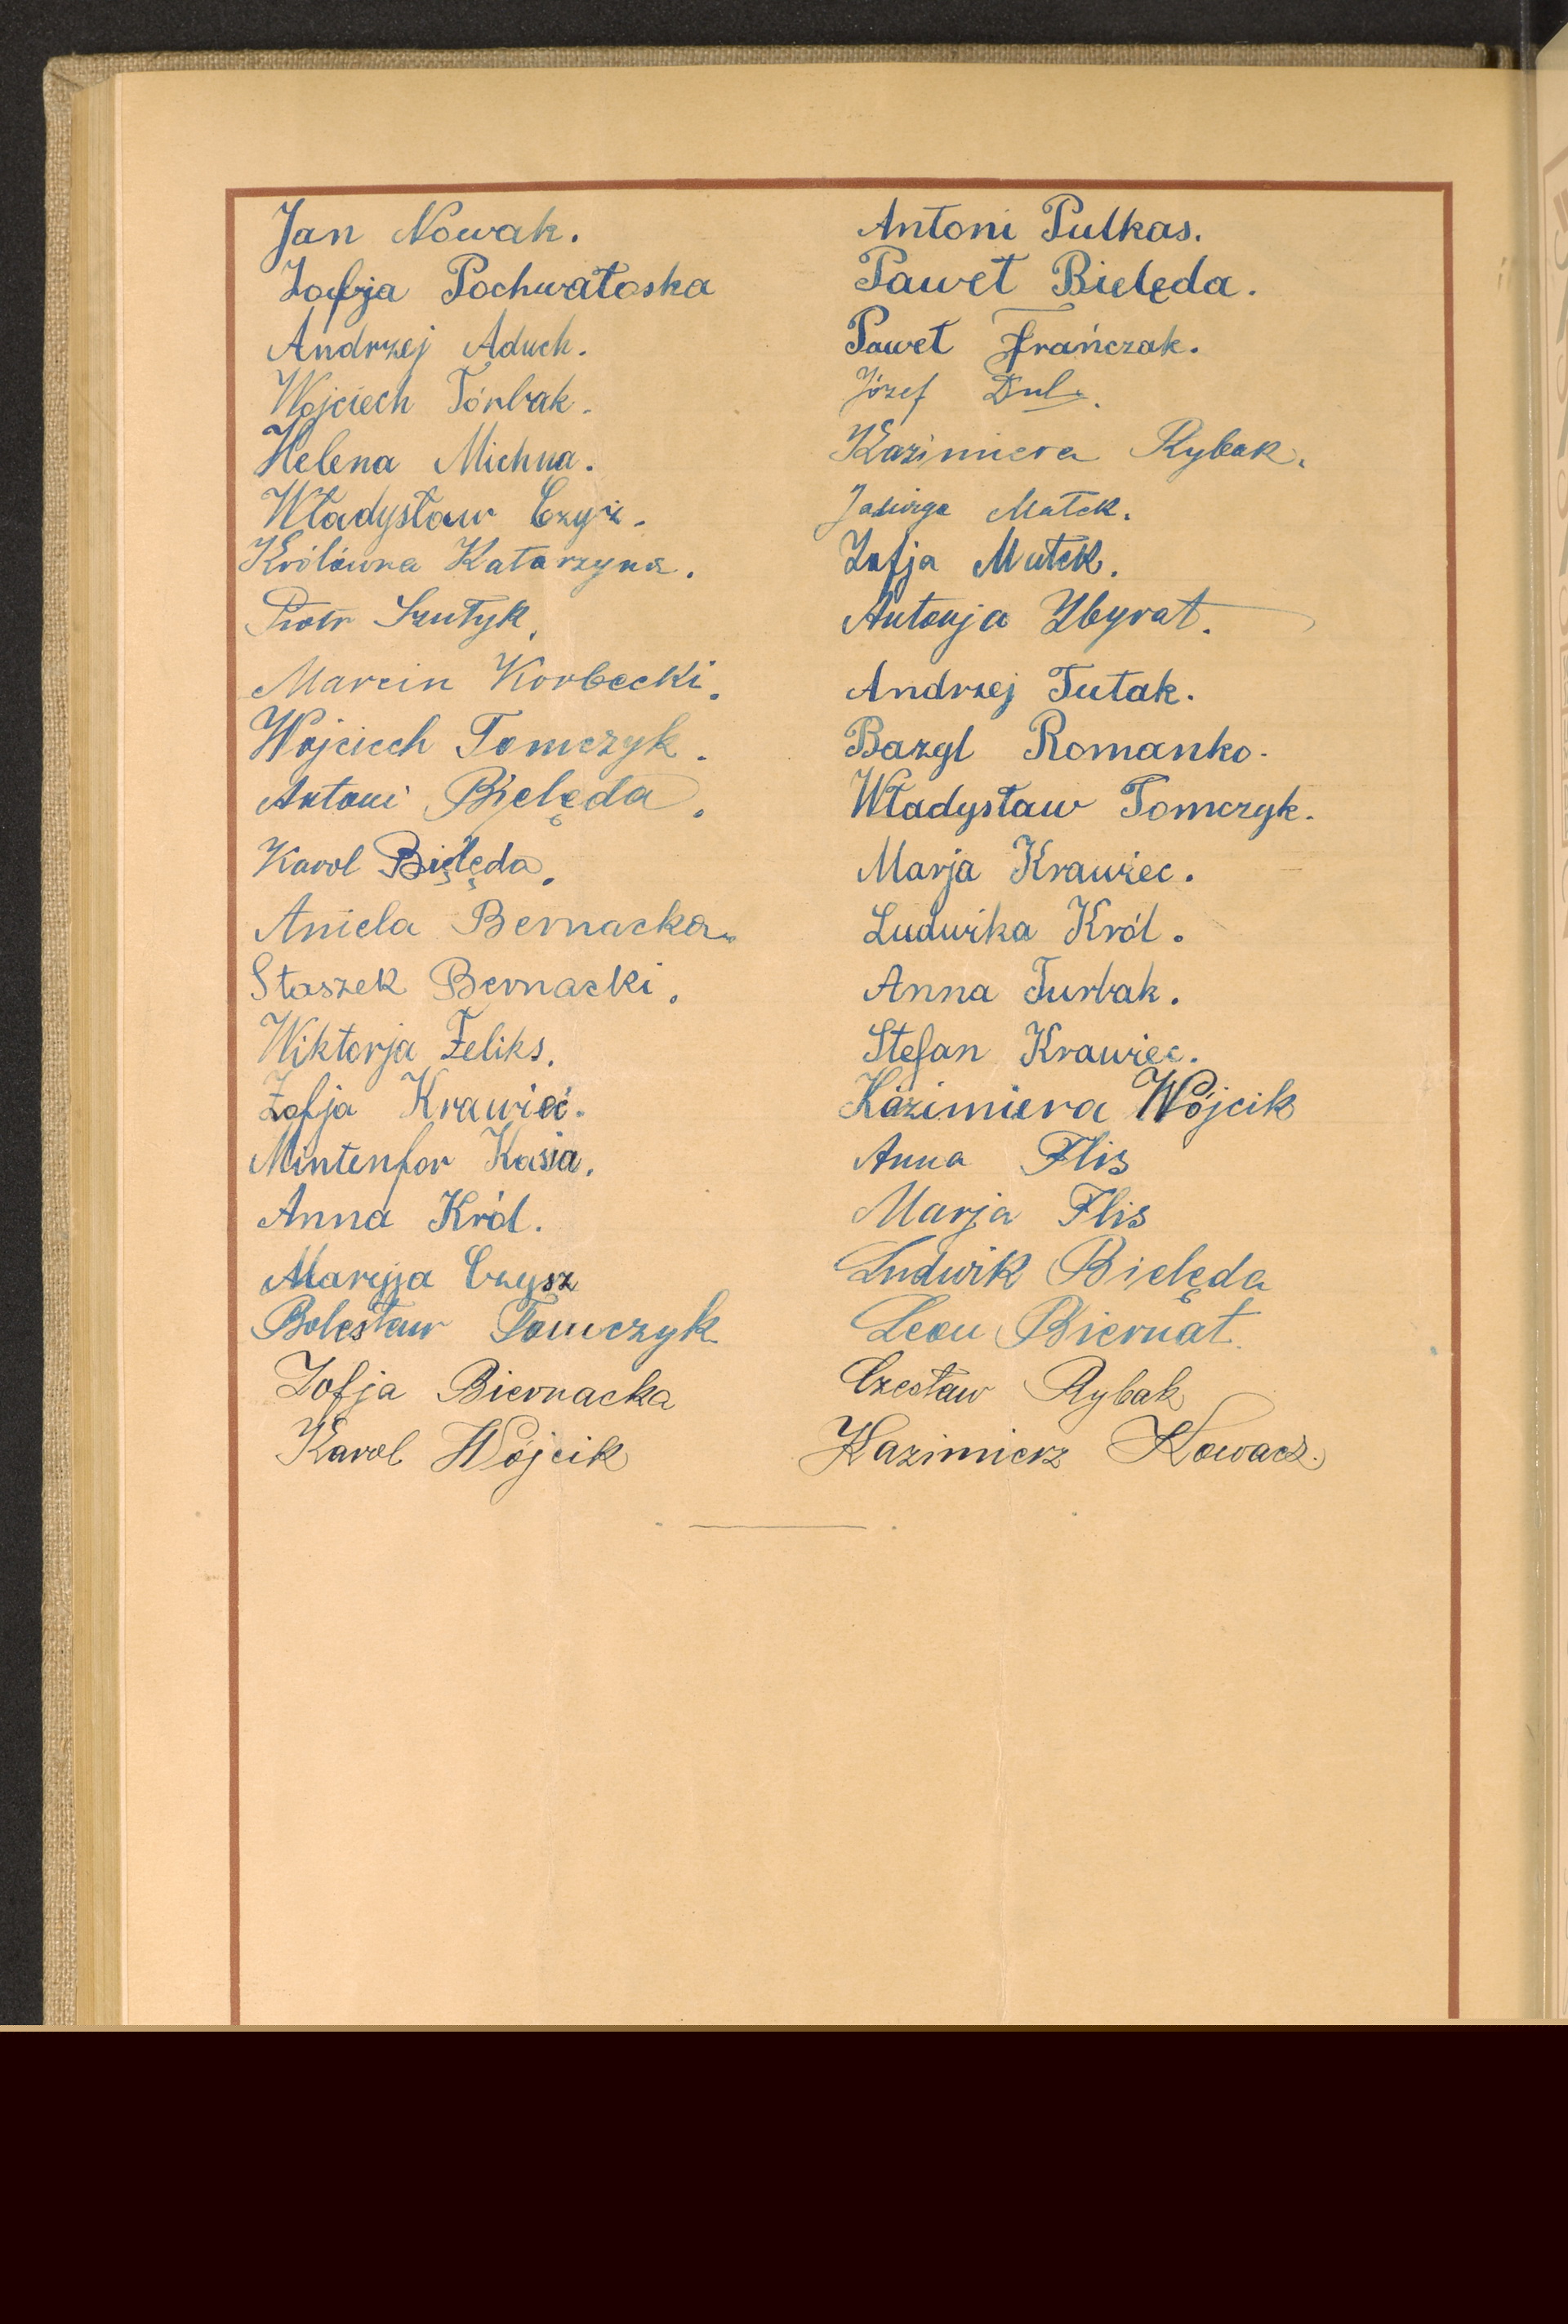 Jan Nowak.
Zofja Pochwatoska
Andrzej Aduch.
Wojciech Tórbak.
Helena Michna.
Władysław Czyż.
Królówna Katarzyna.
Piotr Szutyk.
Marcin Korbecki.
Wojciech Tomczyk.
Antoni Bielęda.
Karol Bielęda.
Aniela Bernacka.
Staszek Bernacki.
Wiktorja Feliks.
Zofja Krawiec.
Mintenfor Kasia.
Anna Król.
Maryja Czysz
Bolesław Tomczyk
Zofja Biernacka
Karol Wójcik
Antoni Putkas.
Paweł Bielęda.
Paweł Frańczak.
Józef Dul.
Kazimiera Rybak.
Matek.
Zofja Mutek.
Antonja Zbyrat.
Andrzej Tutak.
Bazyl Romanko.
Władysław Tomczyk.
Marja Krawiec.
Ludwika Król.
Anna Turbak.
Stefan Krawiec.
Kazimiera Wójcik
Anna Flis
Marja Flis
Ludwik Bielęda
Leon Biernat.
Czesław Rybak
Kazimierz Kowacz.